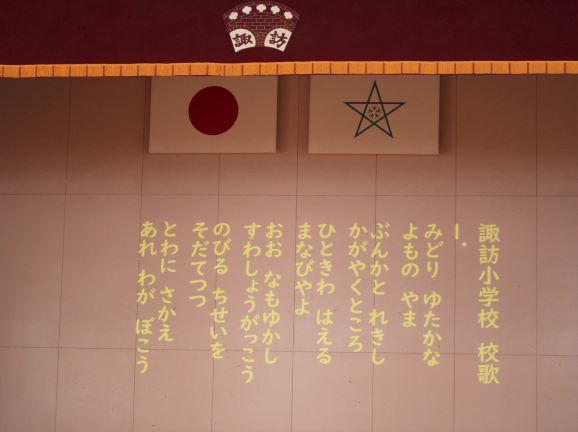 諏訪
諏訪小学校 校歌
1.
みどり ゆたかな
よもの やま
ぶんかと れきし
かがやくところ
ひときわ はえる
まなびやよ
おお なもゆかし
すわしょうがっこう
のびる ちせいを
そだてつつ
とわに さかえ
あれ わが ぼこう